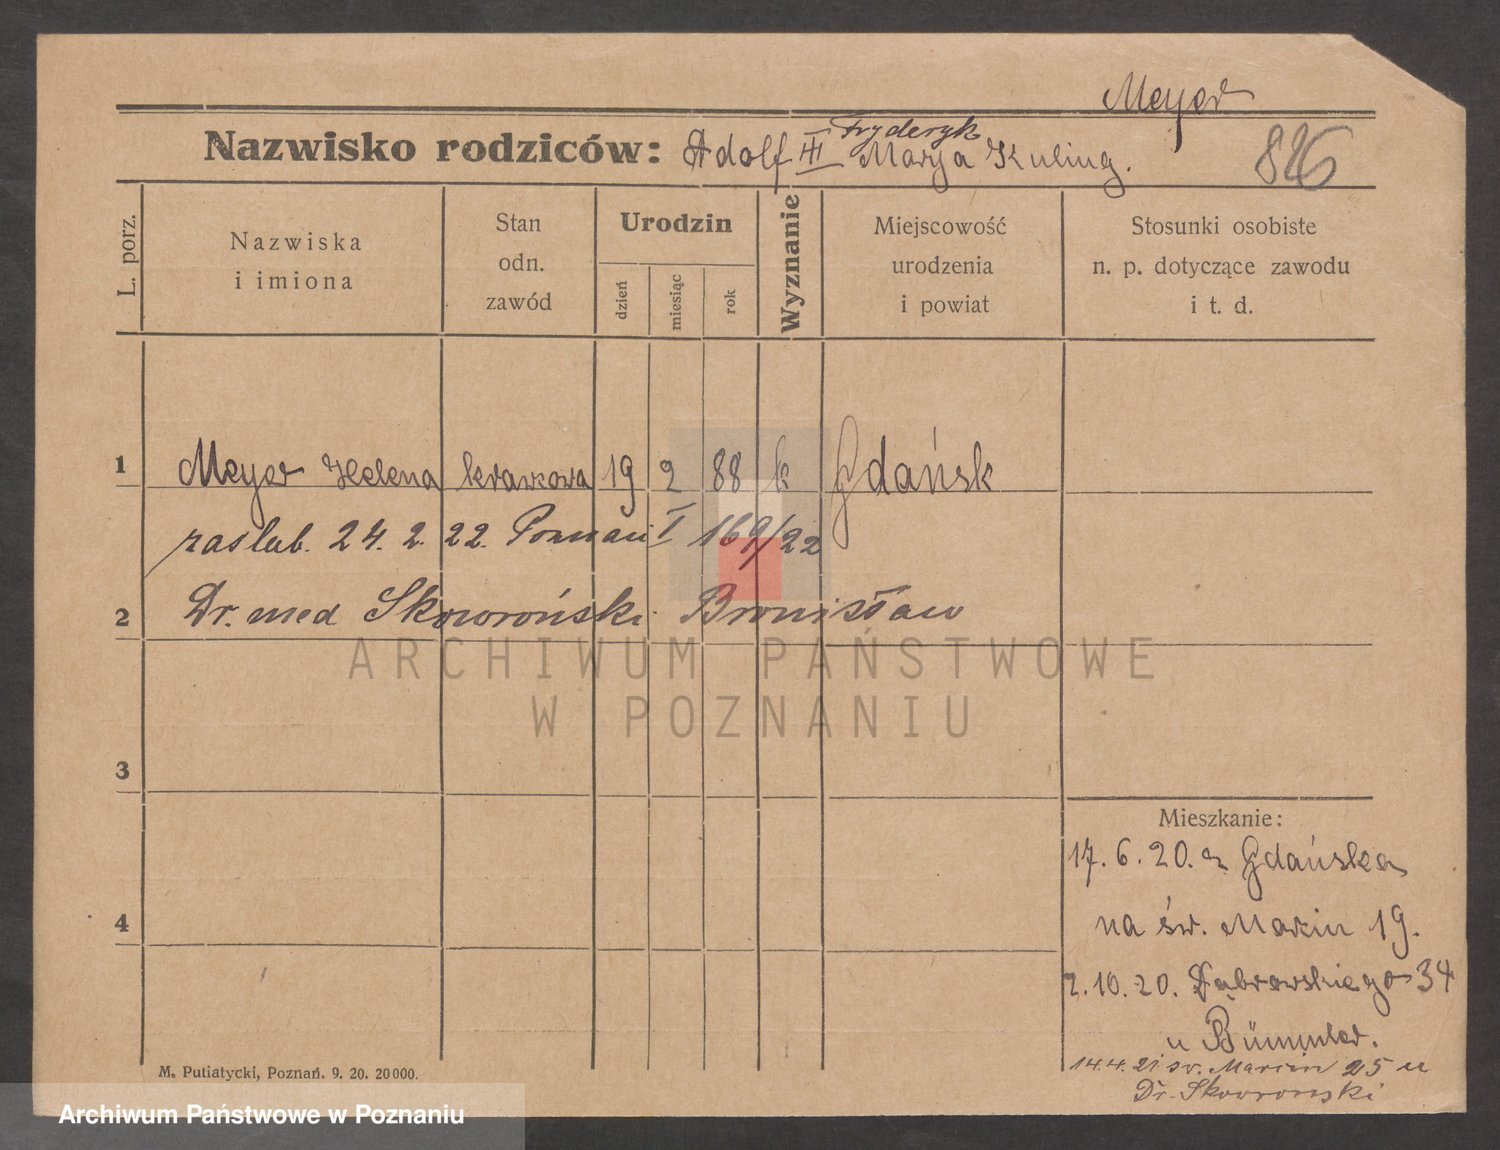 Meyer
Nazwisko rodziców: Adolf III Fryderyk Marja Kuling.
826
L. porz.
Nazwiska i imiona
Stan odn. zawód
Urodzin
dzień
miesiąc
rok
Wyznanie
Miejscowość urodzenia i powiat
Stosunki osobiste n. p. dotyczące zawodu i t. d.
1 Meyer Helena krawcowa 19 2 88 k Gdańsk
zaślub. 24. 2. 22. Poznań I 169/22
2 Dr. med Skoworoński Bronisław
ARCHIWUM PAŃSTWOWE
W POZNANIU
3
4
Mieszkanie:
17. 6. 20. z Gdańska
na św. Marcin 19.
2. 10. 20. Dąbrowskiego 34
u Bümmler.
14.4.21 św. Marcin 25 u
Dr. Skoworonski
M. Putiatycki, Poznań. 9. 20. 20000.
Archiwum Państwowe w Poznaniu